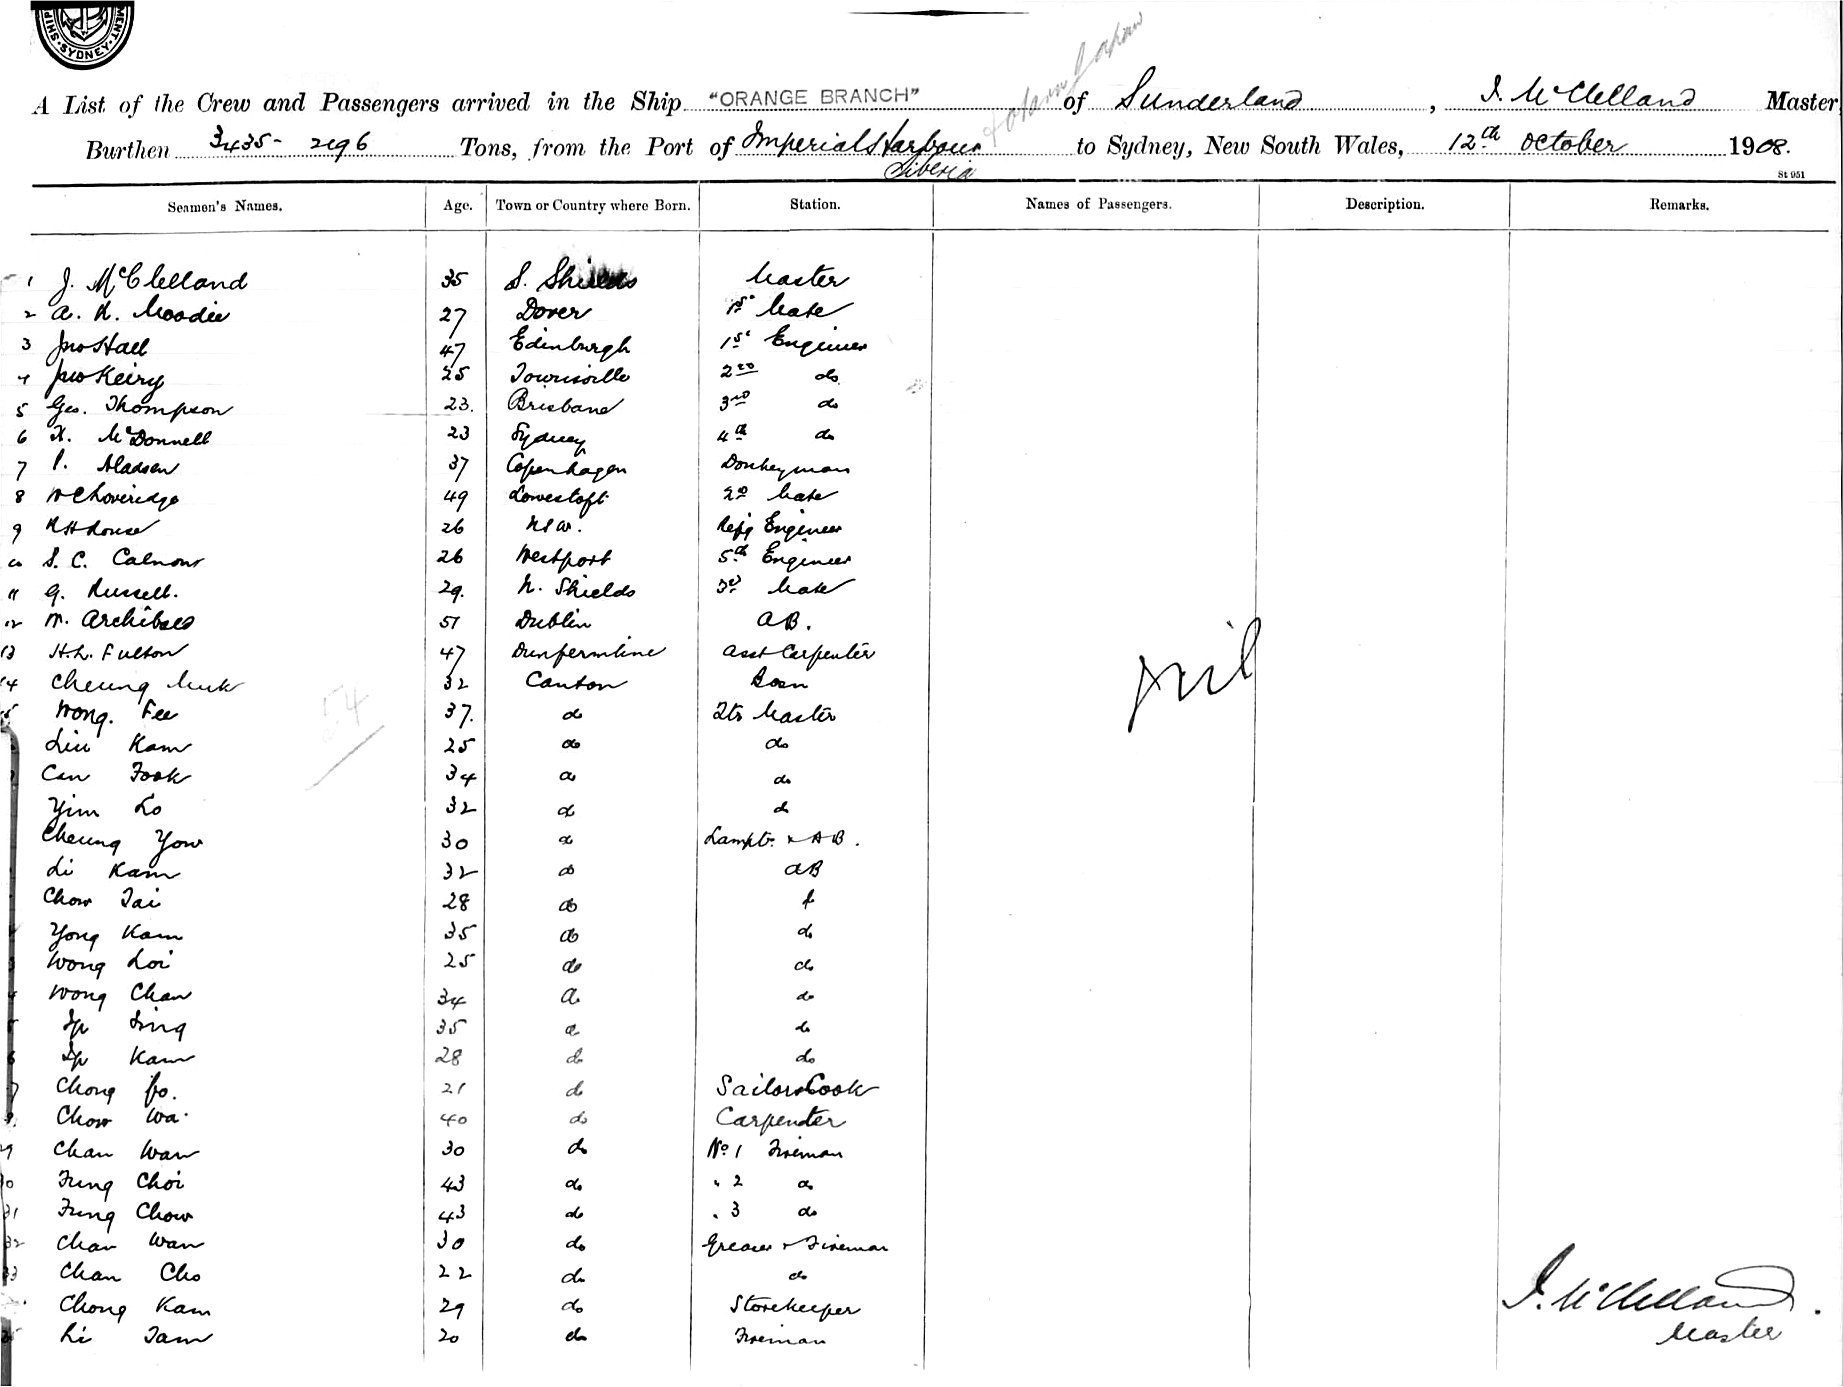 MENT · SYDNEY · SHIP
Japan
A List of the Crew and Passengers arrived in the Ship "ORANGE BRANCH" of Sunderland, J. McClelland Master
Burthen 3435 - 2196 Tons, from the Port of Imperial Harbour to Sydney, New South Wales, 12th October 1908.
Siberia
St 951
Seamen's Names. Age. Town or Country where Born. Station. Names of Passengers. Description. Remarks.
1 J. McClelland 35 S. Shields Master
2 A. K. Moodie 27 Dover 1st Mate
3 Jno Hall 47 Edinburgh 1st Engineer
4 Jno Keiry 25 Townsville 2nd do
5 Geo. Thompson 23. Brisbane 3rd do
6 H. McDonnell 23 Sydney 4th do
7 P. Madsen 37 Copenhagen Donkeyman
8 W Choveridge 49 Lowestoft 2nd Mate
9 R H Rouse 26 N.S.W. Refg Engineer
10 S. C. Calnour 26 Westport 5th Engineer
11 G. Russell. 29. N. Shields 3rd Mate
12 W. Archibald 51 Dublin AB.
13 H.L. Fulton 47 Dunfermline Asst Carpenter
14 Cheung Muk 32 Canton Bosn
Nil
54
15 Wong. Fee 37. do Qtr Master
Liu Kam 25 do do
Can Fook 34 do do
Yim Lo 32 do do
Cheung Yow 30 do Lamptr & AB.
Li Kam 32 do AB
Chow Tai 28 do do
Yong Kam 35 do do
3 Wong Loi 25 do do
4 Wong Chan 34 do do
5 Ip Sing 35 do do
6 Ip Kam 28 do do
7 Chong Po. 21 do Sailors Cook
8 Chow Wa. 40 do Carpenter
29 Chan Wan 30 do No 1 Fireman
30 Fung Choi 43 do " 2 do
31 Fung Chow 43 do " 3 do
32 Chan Wan 30 do Greaser & Fireman
33 Chan Cho 22 do do
Chong Kam 29 do Storekeeper
35 Li Tam 20 do Fireman
J. McClelland.
Master